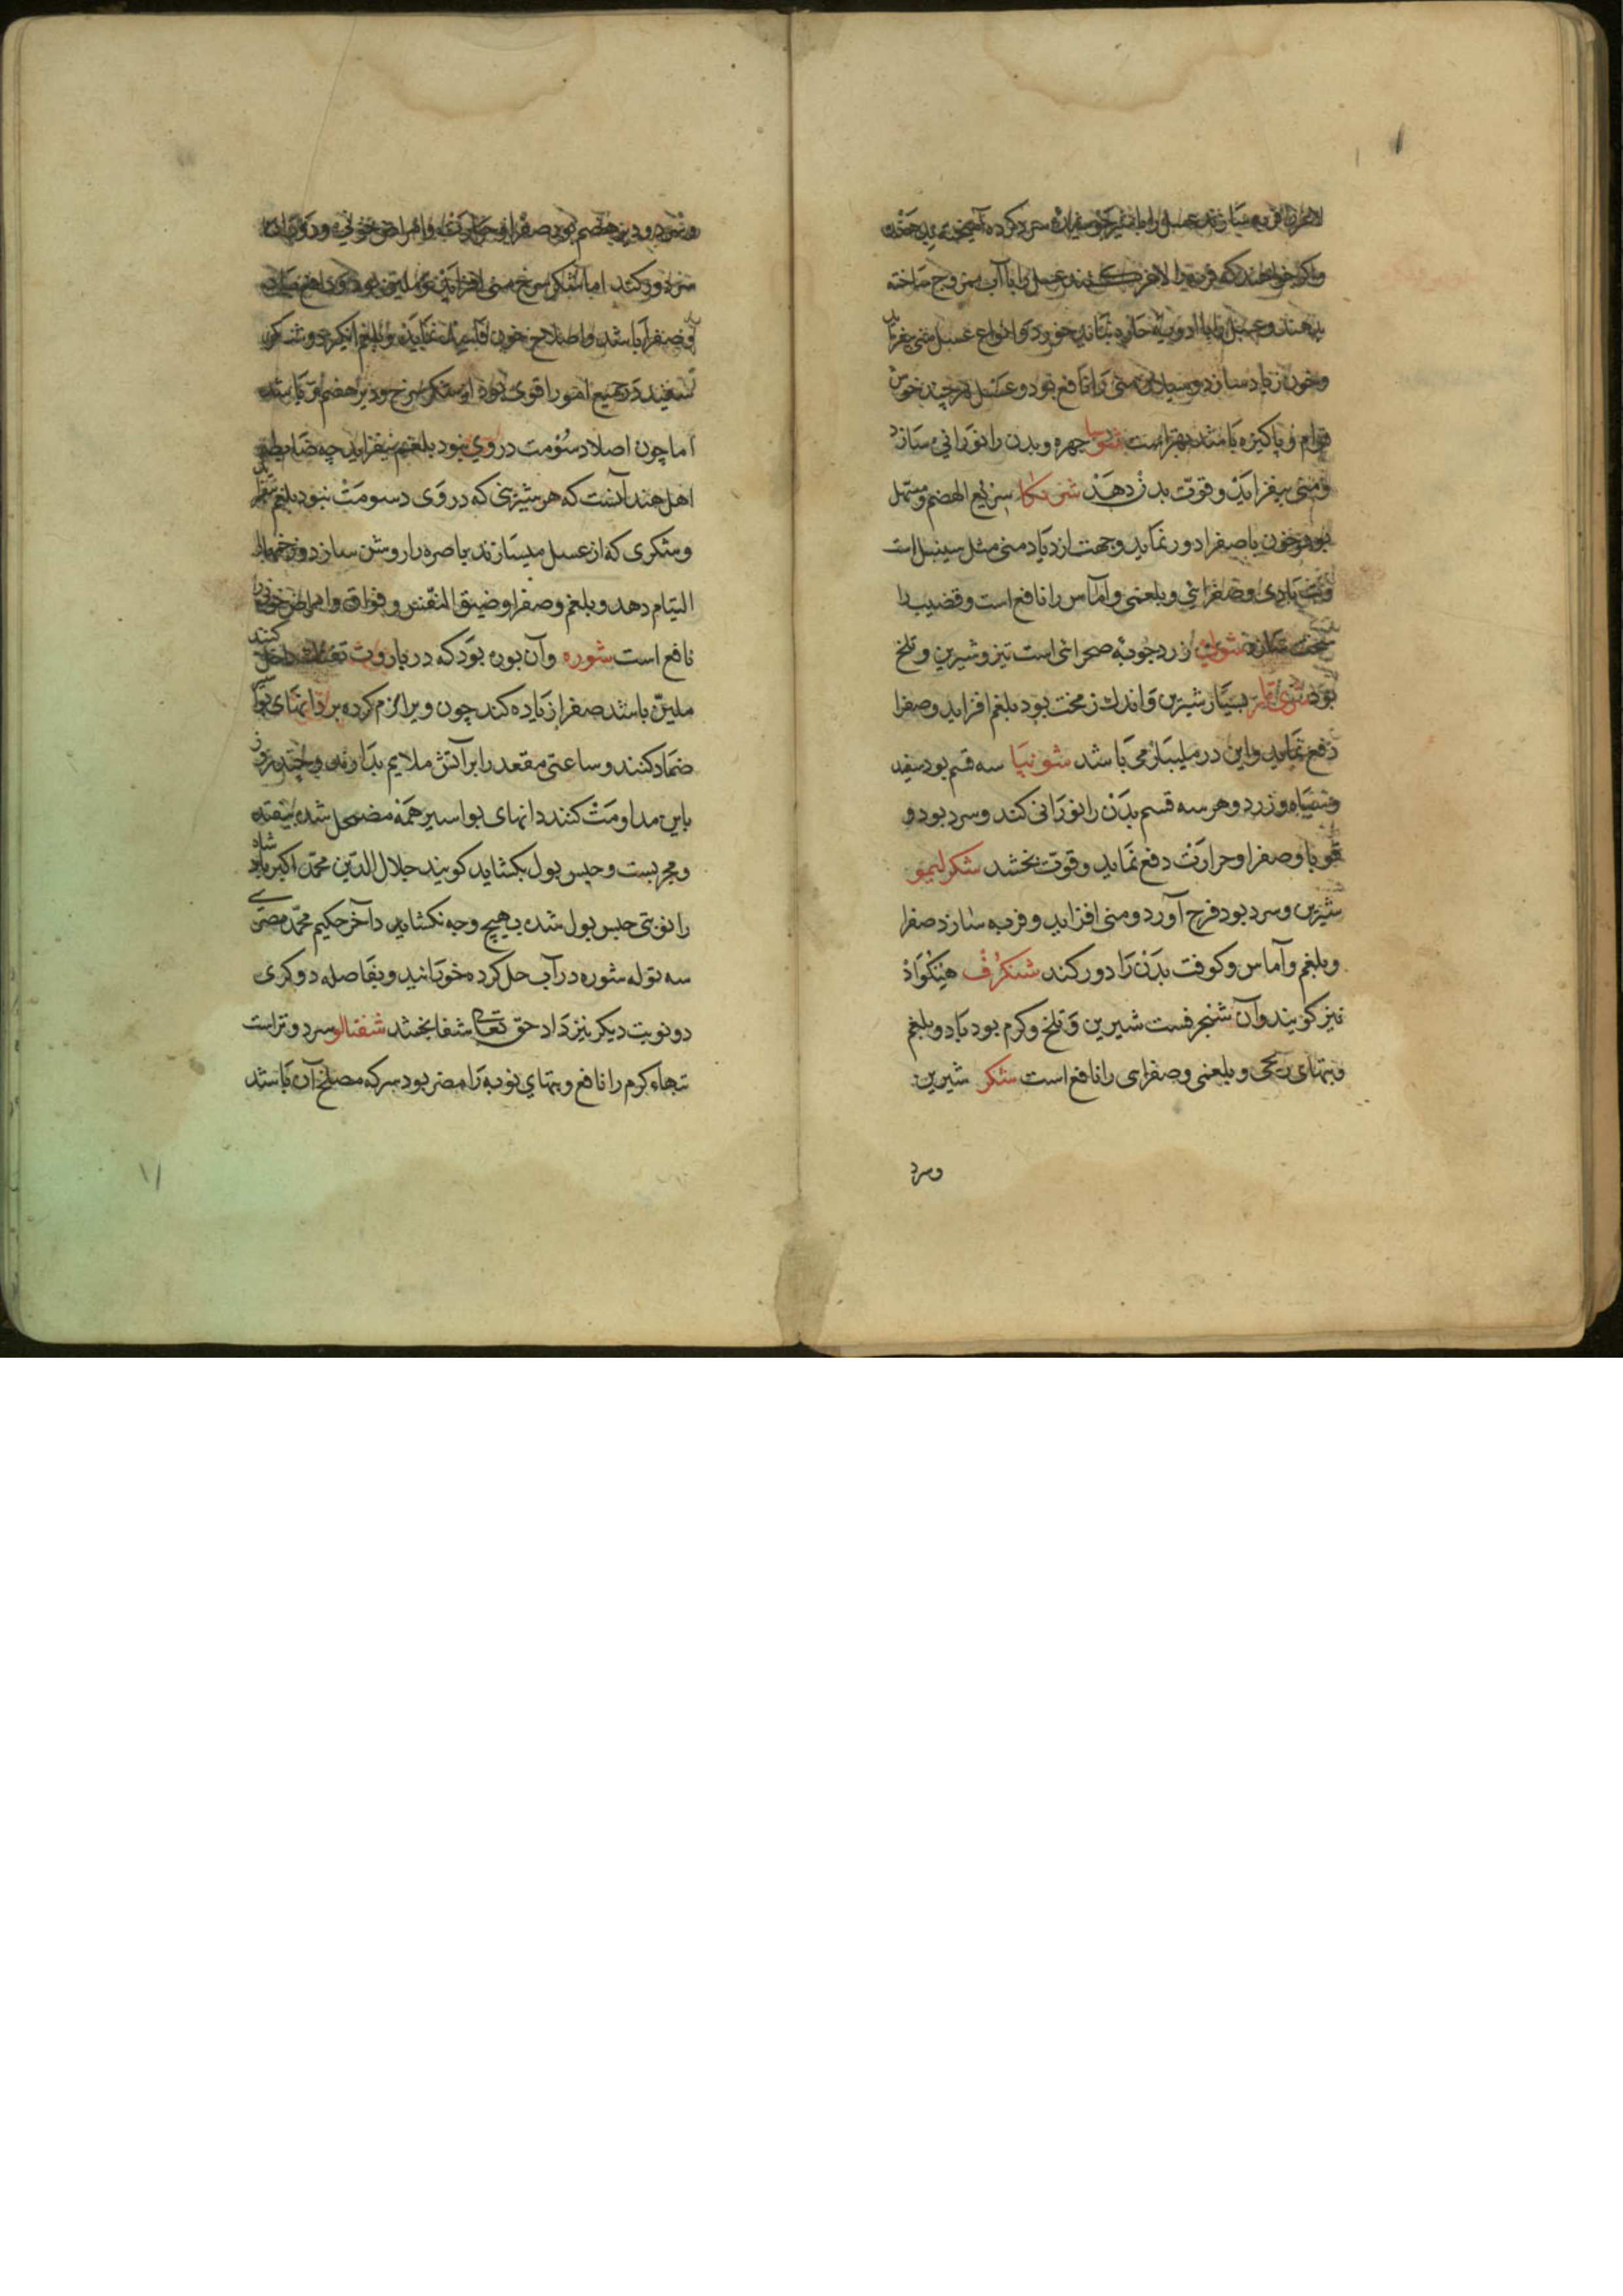 لاغر را فربه سازند عسل را با شیر جوشیده سرد کرده آمیخته بدهند
و اکر خواهند که فربه را لاغر کنند عسل را با آب ممزوج ساخته
بدهند و عسل را با ادویهٔ حاره نباید خورد و انواع عسل منی بیفزاید
و خون زیاد سازد و سیلان منی را نافع بود و عسل هر چند خوش
قوام و پاکیزه باشد بهتر است چهره و بدن را نورانی سازد
و منی بیفزاید و قوت بدن دهد سریع الهضم و مسهل
بود و خون با صفرا دور نماید و جهت ازدیاد منی مثل سینبل است
و تب بادی و صفرائی و بلغمی و آماس را نافع است و قضیب را
سخت سازد زرد چوبهٔ صحرائی است تیز و شیرین و تلخ
بود بسیار شیرین و اندک زمخت بود بلغم افزاید و صفرا
دفع نماید و این در ملیبار می باشد شونیا سه قسم بود سفید
و سیاه و زرد و هر سه قسم بدن را نورانی کند و سرد بود و
قوبا و صفرا و حرارت دفع نماید و قوت بخشد شکر لیمو
شیرین و سرد بود فرح آورد و منی افزاید و فربه سازد صفرا
و بلغم و آماس و کوفت بدن را دور کند شنکرف هینکواد
نیز کویند و آن شنجرفست شیرین و تلخ و کرم بود باد و بلغم
و تبهای ریحی و بلغمی و صفراوی را نافع است شکر شیرین
و سرد
و سرد و دیر هضم بود صفرا و حرارت و امراض خونی و دوران
سر دور کند اما شکر سرخ منی افزاید و ملین بود
و صفرا باشد و اصلاح خون فاسد نماید و بلغم انکیزد و شکر
سفید در جمیع امور را قوی بود از شکر سرخ و دیر هضم تر باشد
اما چون اصلا دسومت در وی نبود بلغم بیفزاید چه ضابطه
اهل هند آنست که هر شیرینی که در وی دسومت نبود بلغم بیفزاید
و شکری که از عسل میسازند باصره را روشن سازد و زخمها را
التیام دهد و بلغم و صفرا و ضیق النفس و فواق و امراض خونی را
نافع است شوره و آن بوره بود که در باروت تفنک داخل کنند
ملین باشد صفرا زیاده کند چون ویرا کرم کرده بر دانهای بواسیر
ضماد کنند و ساعتی مقعد را بر آتش ملایم بدارند و چند روز
باین مداومت کنند دانهای بواسیر همه مضمحل شده بیفتد
و مجربست و حبس بول بکشاید کویند جلال الدین محمد اکبر پادشاه
را نوبتی حبس بول شده بهیچ وجه نکشاید آخر حکیم محمد مصری
سه توله شوره در آب حل کرده خورانید و بفاصله دو کری
دو نوبت دیکر نیز داد حق تعالی شفا بخشد شفتالو سرد و تر است
تبهاء کرم را نافع و تبهای نوبه را مضر بود سرکه مصلح آن باشد